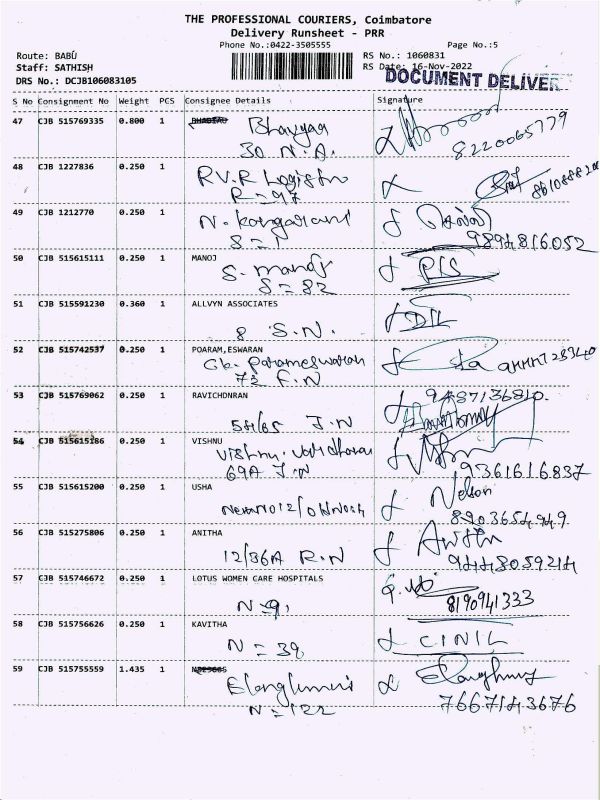 THE PROFESSIONAL COURIERS, Coimbatore
Delivery Runsheet - PRR
Phone No.:0422-3505555 Page No.:5
Route: BABU RS No.: 1060831
Staff: SATHISH RS Date: 16-Nov-2022
DRS No.: DCJB106083105 DOCUMENT DELIVER
S No Consignment No Weight PCS Consignee Details Signature
47 CJB 515769335 0.800 1
30 N.A. 8220065779
48 CJB 1227836 0.250 1 R.V.R Logistn
R=97
49 CJB 1212770 0.250 1
S=1 9894816052
50 CJB 515615111 0.250 1 MANOJ
S. manoj
S=82
51 CJB 515591230 0.360 1 ALLVYN ASSOCIATES
8 S.N.
52 CJB 515742537 0.250 1 POARAM,ESWARAN
Gk. Parameswaran
72 F.N
53 CJB 515769062 0.250 1 RAVICHDNRAN 9487136810.
54/65 J.N
54 CJB 515615186 0.250 1 VISHNU
69A J.N 9361616837
55 CJB 515615200 0.250 1 USHA Nelson
8903654949.
56 CJB 515275806 0.250 1 ANITHA
12/36A R.N 9448059214
57 CJB 515746672 0.250 1 LOTUS WOMEN CARE HOSPITALS
N=9, 8190941333
58 CJB 515756626 0.250 1 KAVITHA
N=39 CINIL
59 CJB 515755559 1.435 1
N=122 7667143676